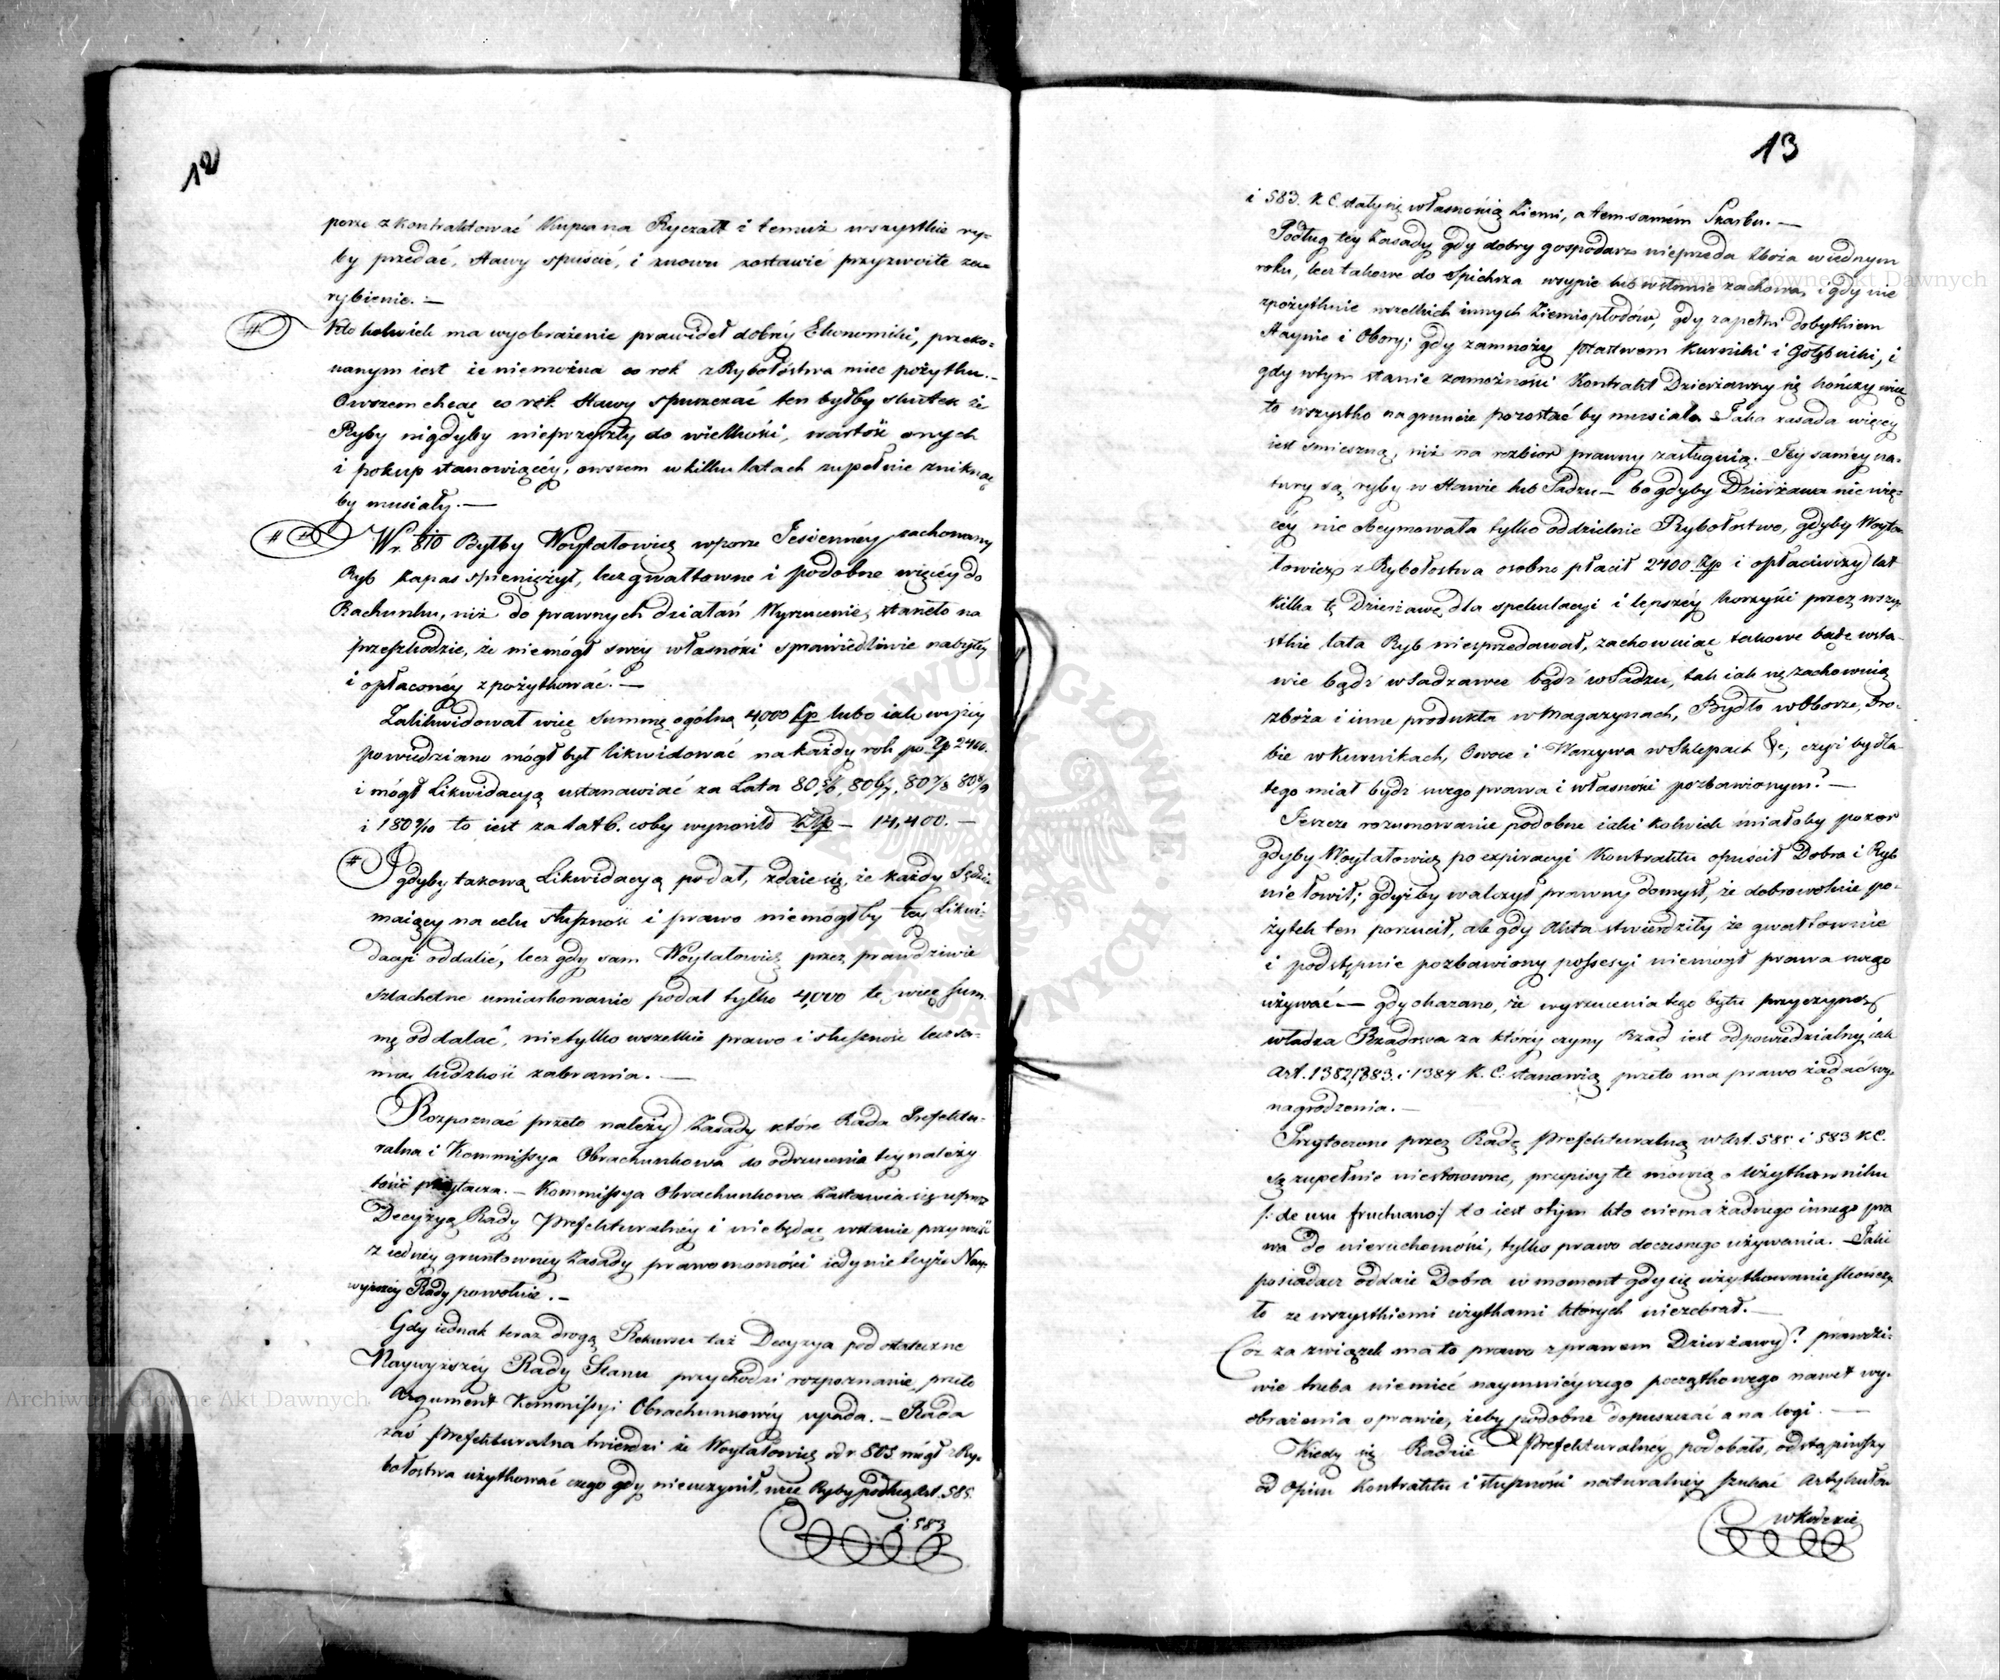 12
porze zkontraktować Kupca na Ryczałt i temuż wszystkie ry-
by przedać, Stawy spuścić, i znowu zostawić przyzwoite za-
rybienie. —
# Kto kolwiek ma wyobrażenie prawideł dobréy Ekonomiki, przeko-
nanym iest że niemożna co rok z Rybołóstwa mieć pożytku. -
Owszem chcąc co rok Stawy spuszczać ten byłby skutek że
Ryby nigdyby nieprzyszły do wielkości, wartość onych
i pokup stanowiącéy, owszem w kilku latach zupełnie zniknąć
by musiały. —
## W r. 810 Byłby Woytatowicz w porze Jesiennéy zachowany
Ryb zapas spieniężył, lecz gwałtowne i podobne więcéy do
Rachunku, niż do prawnych działań Wyrzucenie, stanęło na
przeszkodzie, że niemógł swéy własności sprawiedliwie nabytéy
i opłaconéy zpożytkować. —
Zalikwidował więc Summę ogólną 4,000 Zp lubo iak wyżéy
powiedziano mógł był likwidować na każdy rok po Zp 2400.
i mógł Likwidacyą ustanawiać za Lata 805/6, 806/7, 807/8 808/9
i 1809/10 to iest za lat 6. coby wynosiło Złp — 14,400. —
# I gdyby takową Likwidacyą podał, zdaie się, że każdy Sędzia
maiący na celu słuszność i prawo niemógłby téy Likwi-
dacyi oddalić, lecz gdy sam Woytatowicz przez prawdziwie
szlachetne umiarkowanie podał tylko 4,000 tę więc sum-
mę oddalać, nietylko wszelkie prawo i słuszność lecz sa-
ma ludzkość zabrania. —
Rozpoznać przeto należy Zasady które Rada Prefektu-
ralna i Kommissya Obrachunkowa do odrzucenia téy należy
tości przytacza. — Kommissya Obrachunkowa Zastawia się uprzez
Decyzyą Rady Prefekturalnéy i niebędąc wstanie przywieść
z iednéy gruntownéy Zasady prawomocności iedynie teyże Nay-
wyższéy Rady powołuie. —
Gdy iednak teraz drogą Rekursu taż Decyzya pod ostateczne
Naywyższéy Rady Stanu przychodzi rozpoznanie, przeto
Argument Kommissyi Obrachunkowéy upada. — Rada
zaś Prefekturalna twierdzi że Woytatowicz od r. 805 mógł z Ry-
bołostwa użytkować czego gdy nieuczynił, więc Ryby podług Art. 585
i 583
13
i 583. K. C. stały się własnością Ziemi, a temsamém Skarbu. —
Podług téy Zasady gdy dobry gospodarz nieprzeda Zboża w iednym
roku, lecz takowe do Spichrza wsypie lub w słomie zachowa, i gdy nie
zpożytkuie wszelkich innych Ziemiopłodów, gdy zapełni dobytkiem
Staynie i Obory; gdy zamnoży ptastwem Kurniki i Gołębniki, i
gdy w tym stanie zamożności Kontrakt Dzierżawny się kończy więc
to wszystko na gruncie pozostać by musiało. Taka zasada więcéy
iest śmieszną, niż na rozbiór prawny zasługuią. Téy saméy na-
tury są ryby w Stawie lub Sadzu — bo gdyby Dzierżawa nie wię-
céy nie obeymowała tylko oddzielnie Rybołostwo, gdyby Woyta-
towicz z Rybołostwa osobno płacił 2400 Złp i opłaciwszy lat
kilka tę Dzierżawę dla spekulacyi i lepszéy korzyści przez wszy-
stkie lata Ryb niesprzedawał, zachowuiąc takowe bądź w sta-
wie bądź w Sadzawce bądź w Sadzu, tak iak się zachowuią
zboża i inne produkta w Magazynach, Bydło w Oborze, Dro-
bie w Kurnikach, Owoce i Warzywa w Sklepach &c, czyż by dla-
tego miał bydź swego prawa i własności pozbawionym? —
Jeszcze rozumowanie podobne iaki kolwiek miałoby pozor
gdyby Woytatowicz po expiracyi Kontraktu opuścił Dobra i Ryb
nie łowił; gdyżby walczył prawny domysł, że dobrowolnie po-
żytek ten porzucił, ale gdy Akta stwierdziły że gwałtownie
i podstępnie pozbawiony possesyi niemógł prawa swego
używać — gdy okazano, że wyrzucenia tego była przyczyną
władza Rządowa za któréy czyny Rząd iest odpowiedzialny iak
Art. 1382, 1383. i 1384 K. C. stanowią, przeto ma prawo żądać wy-
nagrodzenia. —
Przytoczone przez Radę Prefekturalną w Art. 585 i 583 K C.
są zupełnie niestosowne, przepisy te mówią o Użytkowniku
/: de usu fructuano :/ to iest o tym kto niema żadnego innego pra
wa do nieruchomości, tylko prawo doczesnego używania. — Taki
posiadacz oddaie Dobra w moment gdy się użytkowanie skończy,
to ze wszystkiemi użytkami których niezebrał. —
Coż za związek ma to prawo z prawem Dzierżawy? prawdzi-
wie trzeba niemieć naymnieyszego początkowego nawet wy-
obrażenia o prawie, żeby podobne dopuszczać analogi. —
Kiedy się Radzie Prefekturalnéy podobało, odstąpiwszy
od opisu Kontraktu i słuszności naturalnéy szukać Artykułów
w Kodexie
Archiwum Główne Akt Dawnych
Archiwum Główne Akt Dawnych
ARCHIWUM GŁÓWNE AKT DAWNYCH